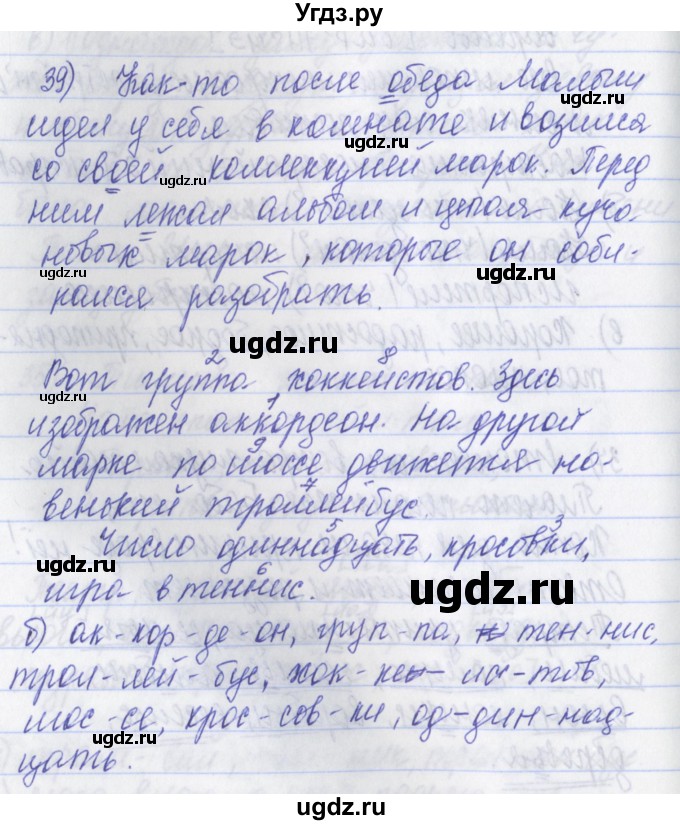 Угдз.ру
39) Как-то после обеда Малыш
сидел у себя в комнате и возился
со своей коллекцией марок. Перед
ним лежал альбом и целая куча
новых марок, которые он соби-
рался разобрать.
Вот группа хоккеистов. Здесь
изображен аккордеон. На другой
марке по шоссе движется но-
венький троллейбус.
Число одиннадцать, кросовки,
игра в теннис.
б) ак-кор-де-он, груп-па, тен-нис,
трол-лей-бус, хок-ке-ис-тов,
шос-се, крос-сов-ки, од-дин-над-
цать.
ugdz.ru
ugdz.ru
ugdz.ru
ugdz.ru
ugdz.ru
ugdz.ru
ugdz.ru
ugdz.ru
ugdz.ru
ugdz.ru
ugdz.ru